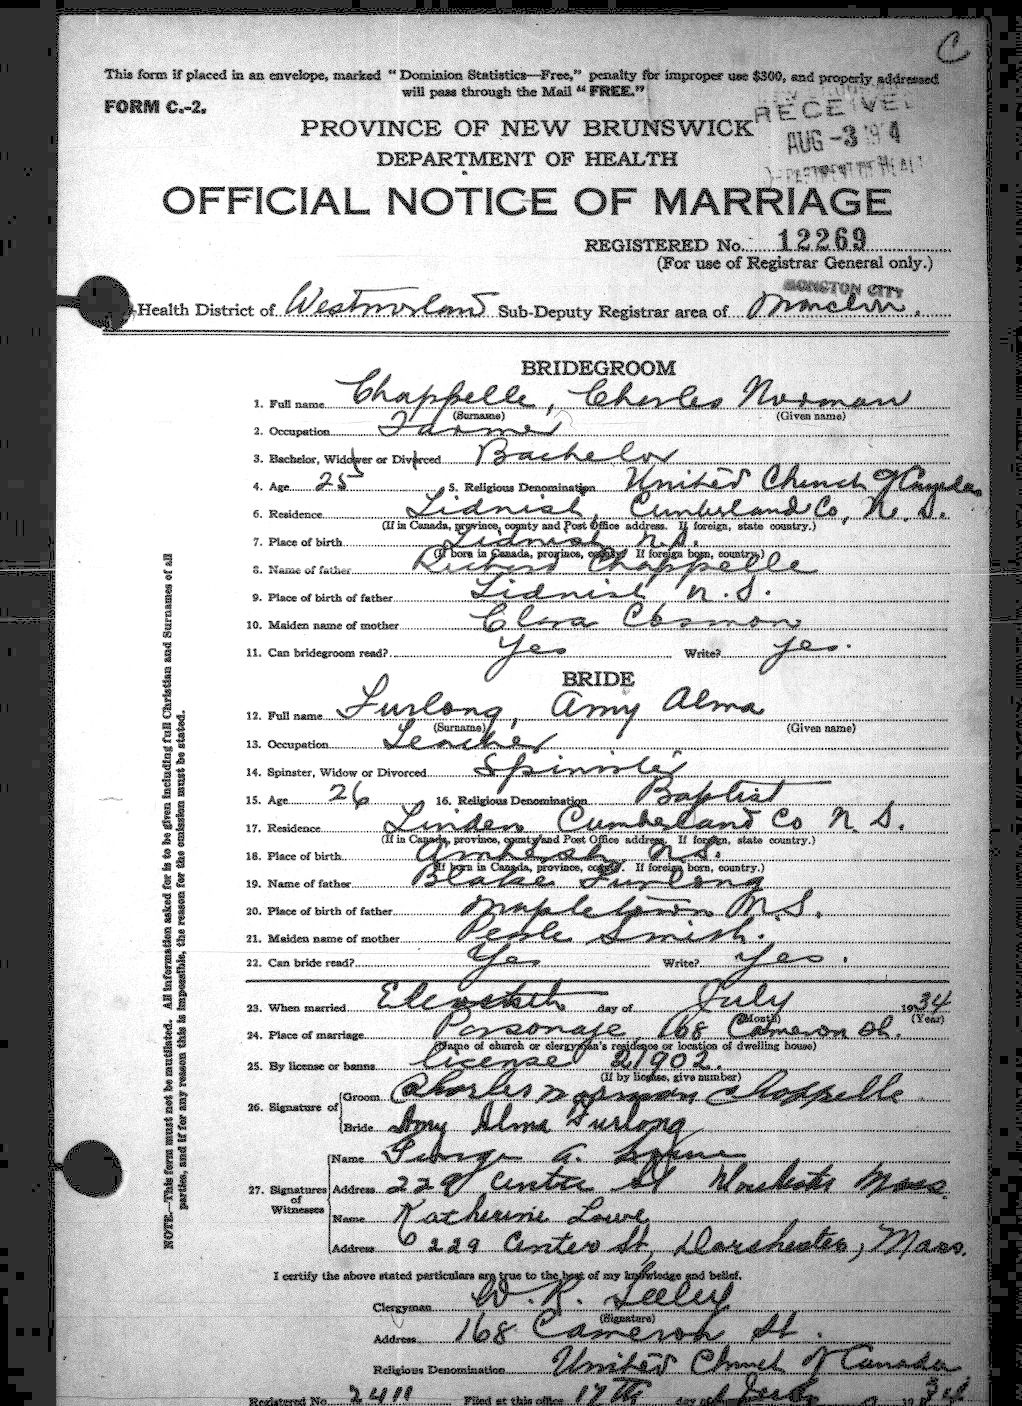 C
This form if placed in an envelope, marked "Dominion Statistics—Free," penalty for improper use $300, and properly addressed
will pass through the Mail "FREE."
FORM C.-2.
RECEIVED
AUG -3 1934
DEPARTMENT OF HEALTH
PROVINCE OF NEW BRUNSWICK
DEPARTMENT OF HEALTH
OFFICIAL NOTICE OF MARRIAGE
REGISTERED No. 12269
(For use of Registrar General only.)
MONCTON CITY
Health District of Westmorland Sub-Deputy Registrar area of Moncton.
BRIDEGROOM
1. Full name Chappelle, Charles Norman
(Surname) (Given name)
2. Occupation Farmer
3. Bachelor, Widower or Divorced Bachelor
4. Age 25 5. Religious Denomination United Church of Canada
6. Residence Lidnish, Cumberland Co, N. S.
(If in Canada, province, county and Post Office address. If foreign, state country.)
7. Place of birth Lidnish N.S.
(If born in Canada, province, county. If foreign born, country.)
8. Name of father Richard Chappelle
9. Place of birth of father Lidnish N.S.
10. Maiden name of mother Clara
11. Can bridegroom read? Yes Write? Yes.
BRIDE
12. Full name Furlong, Amy Alma
(Surname) (Given name)
13. Occupation Teacher
14. Spinster, Widow or Divorced Spinster
15. Age 26 16. Religious Denomination Baptist
17. Residence Linden Cumberland Co N. S.
(If in Canada, province, county and Post Office address. If foreign, state country.)
18. Place of birth Amherst N.S.
(If born in Canada, province, county. If foreign born, country.)
19. Name of father Blake Furlong
20. Place of birth of father Mapletown N.S.
21. Maiden name of mother Pearle Smith.
22. Can bride read? Yes Write? Yes.
23. When married Eleventh day of July 1934
(Month) (Year)
24. Place of marriage Parsonage 168 Cameron St.
(Name of church or clergyman's residence or location of dwelling house)
25. By license or banns license 21902.
(If by license, give number)
26. Signature of Groom Charles Norman Chappelle
Bride Amy Alma Furlong
27. Signatures of Witnesses
Name George A.
Address 229 Centre St Dorchester Mass.
Name Katherine Lowe
Address 229 Center St, Dorchester, Mass.
I certify the above stated particulars are true to the best of my knowledge and belief.
Clergyman W. R. Seeley
(Signature)
Address 168 Cameron St.
Religious Denomination United Church of Canada
Registered No. 2411 Filed at this office 17th day of July 1934
NOTE.—This form must not be mutilated. All information asked for is to be given including full Christian and Surnames of all
parties, and if for any reason this is impossible, the reason for the omission must be stated.